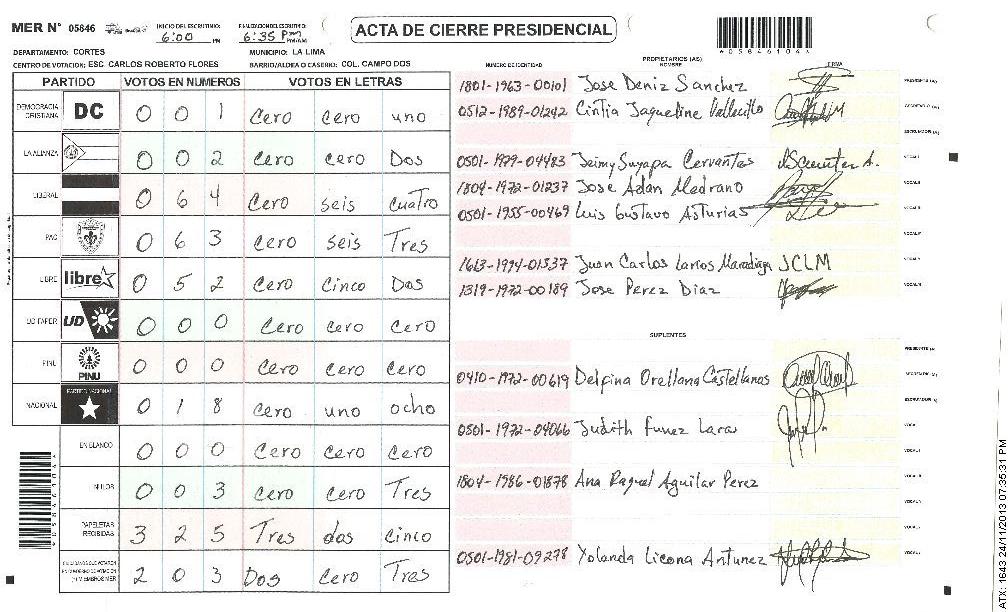 MER N° 05846
INICIO DEL ESCRUTINIO: 6:00 PM
FINALIZACION DEL ESCRUTINIO: 6:35 Pm PM/AM
ACTA DE CIERRE PRESIDENCIAL
DEPARTAMENTO: CORTES
MUNICIPIO: LA LIMA
CENTRO DE VOTACION: ESC. CARLOS ROBERTO FLORES
BARRIO/ALDEA O CASERIO: COL. CAMPO DOS
PARTIDO VOTOS EN NUMEROS VOTOS EN LETRAS
DEMOCRACIA CRISTIANA DC 0 0 1 Cero cero uno
LA ALIANZA 0 0 2 Cero cero Dos
LIBERAL 0 6 4 Cero seis cuatro
PAC 0 6 3 Cero seis Tres
LIBRE libre 0 5 2 Cero Cinco Dos
UD FAPER UD 0 0 0 Cero Cero Cero
PINU PINU 0 0 0 Cero Cero Cero
NACIONAL PARTIDO NACIONAL 0 1 8 Cero uno ocho
EN BLANCO 0 0 0 Cero Cero Cero
NULOS 0 0 3 Cero Cero Tres
PAPELETAS RECIBIDAS 3 2 5 Tres dos Cinco
2 0 3 Dos Cero Tres
NUMERO DE IDENTIDAD
PROPIETARIOS (AS)
NOMBRE
FIRMA
1801-1963-00101 Jose Deniz Sanchez
0512-1989-01242 Cintia Jaqueline Vallecillo
0501-1979-04483 Jeimy Suyapa Cervantes
1804-1972-01237 Jose Adan Medrano
0501-1955-00469 Luis Gustavo Asturias
1613-1994-01537 Juan Carlos Larios Maradiaga JCLM
1319-1972-00189 Jose Perez Diaz
SUPLENTES
0410-1972-00619 Delfina Orellana Castellanos
0501-1972-04066 Judith Funez Lara
1804-1986-01878 Ana Raquel Aguilar Perez
0501-1981-09278 Yolanda Licona Antunez
ATX: 1643 24/11/2013 07:35:31 PM